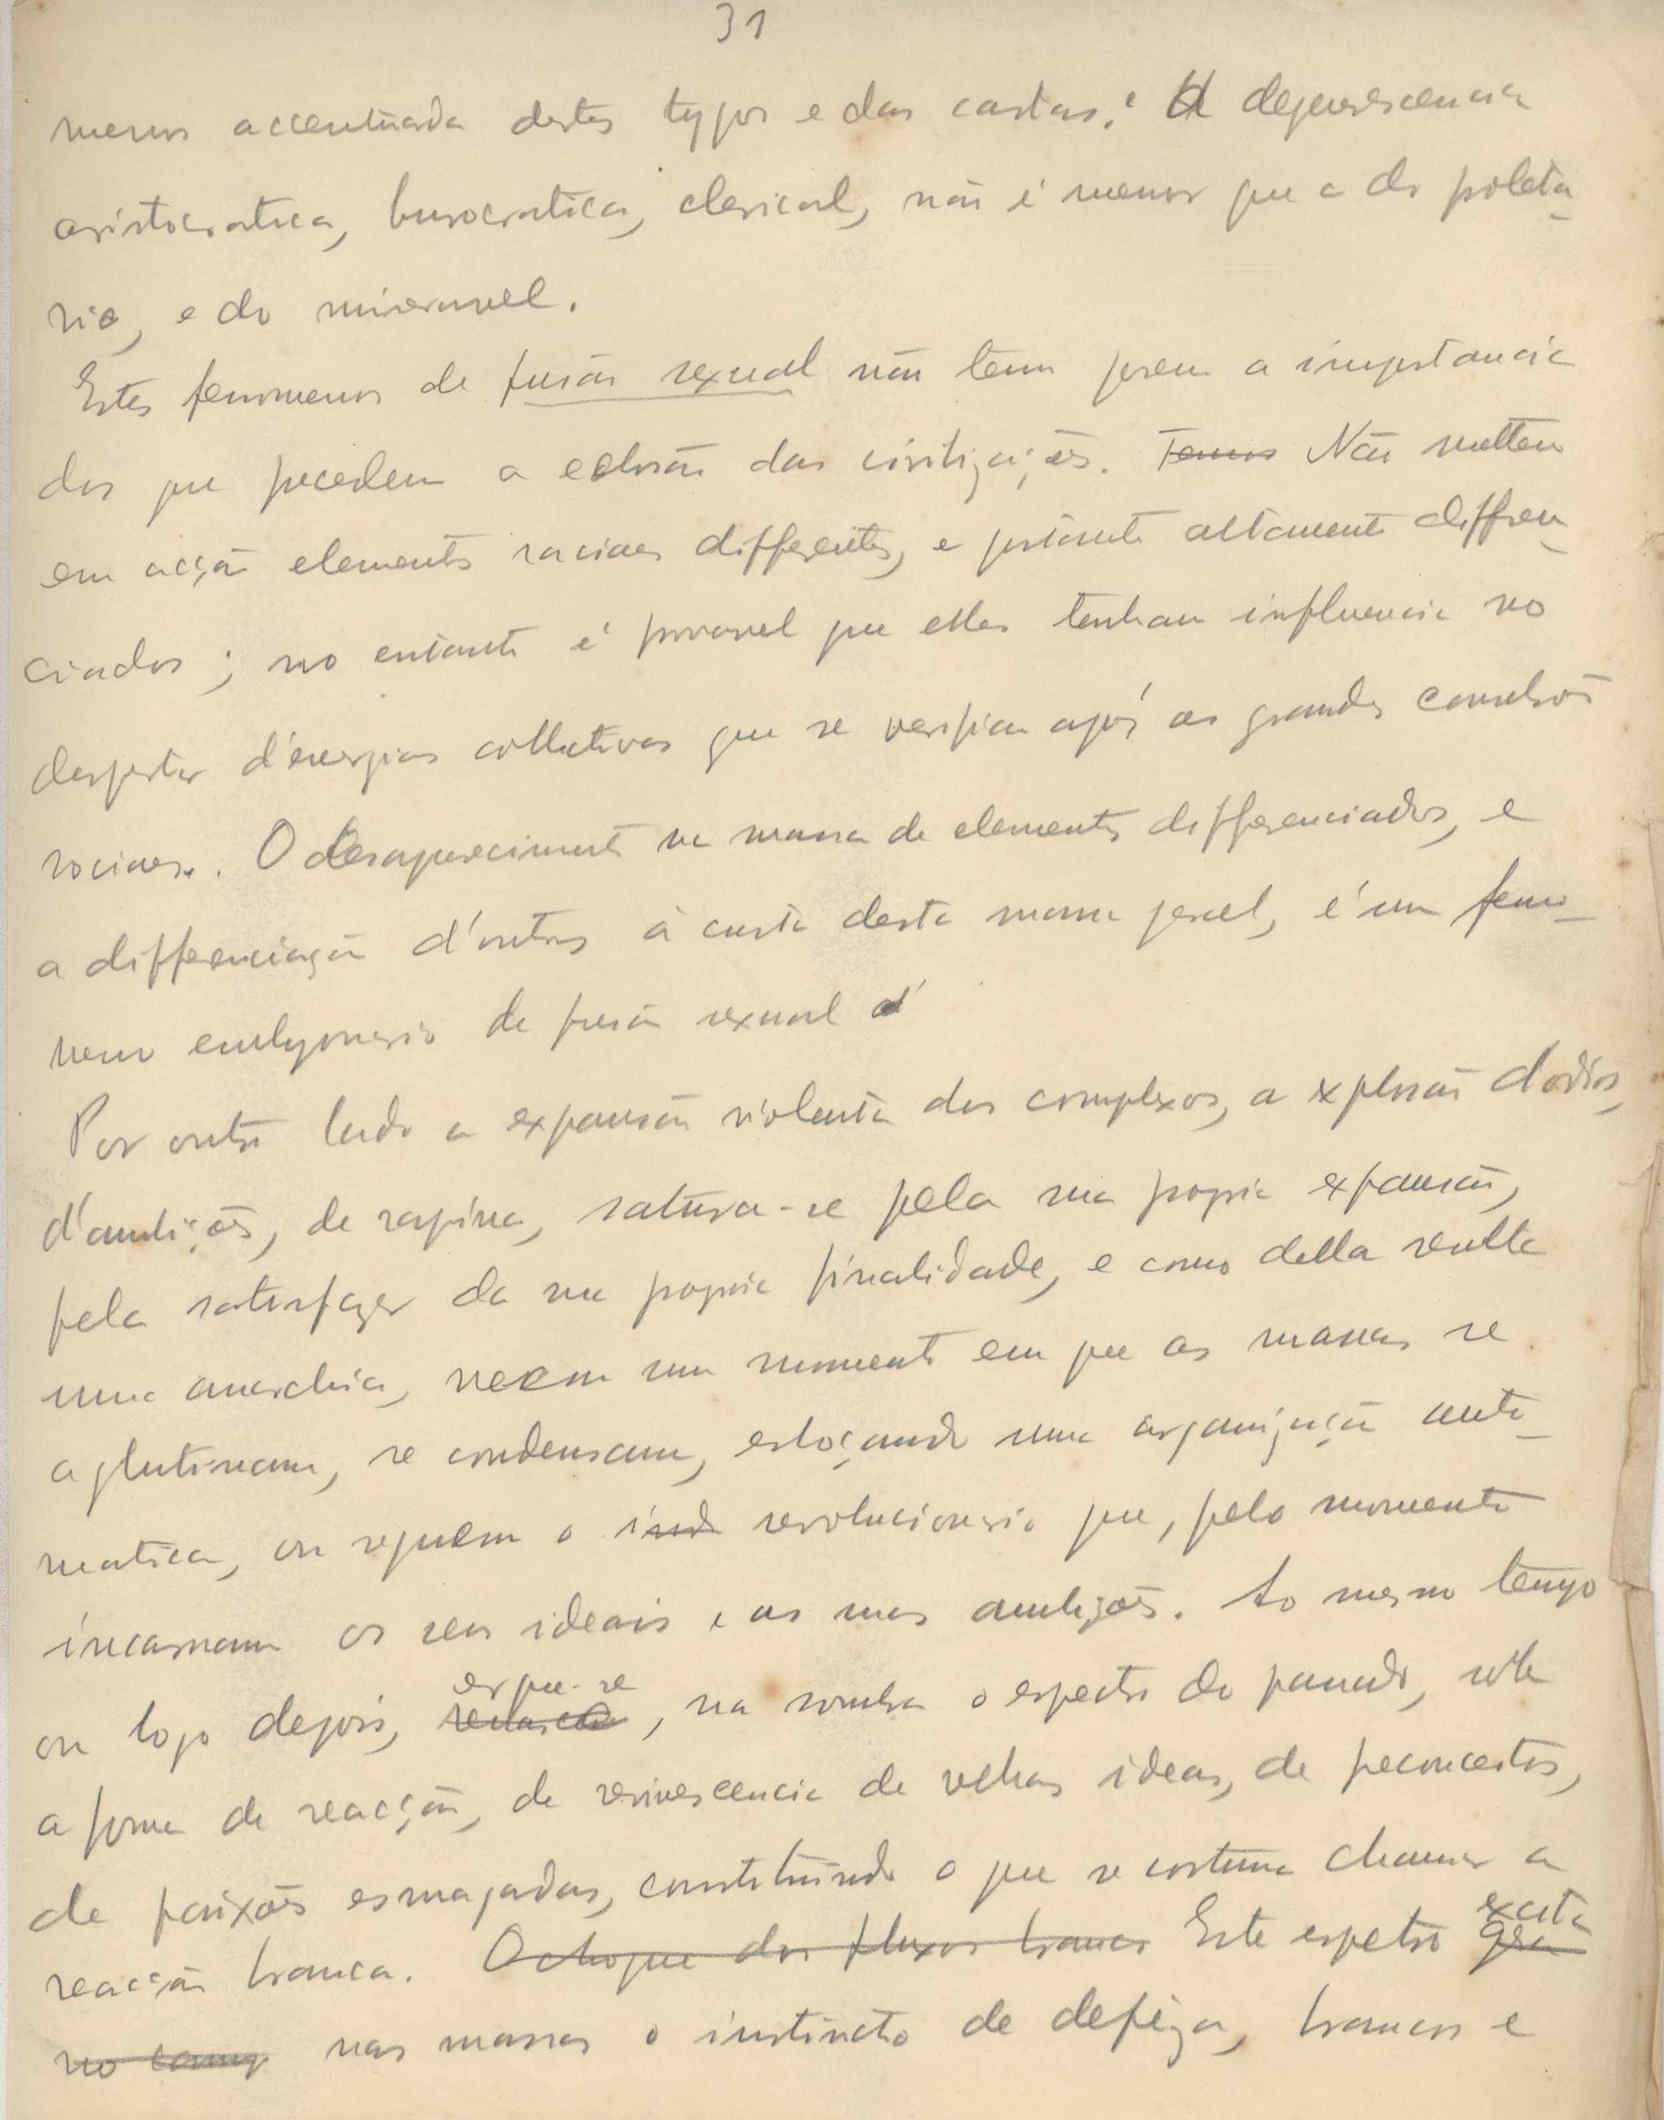 31
menos accentuada destes typos e das castas. A degenerescencia
aristocratica, burocratica, clerical, não é menor que a do proleta-
rio, e do miseravel.
Estes fenomenos de fusão sexual não tem porem a importancia
dos que precedem a eclosão das civilizações. Temos Não mettem
em acção elementos raciaes differentes, e portanto altamente differen-
ciados; no entanto é provavel que elles tenham influencia no
despertar d'energias collectivas que se verifica após as grandes convulsões
sociaes. O desaparecimento na massa de elementos differenciados, e
a differenciação d'outros à custa desta massa geral, é um feno-
meno embryonario de fusão sexual d'
Por outro lado a expansão violenta dos complexos, a explosão d'odios,
d'ambições, de rapina, satura-se pela sua propria expansão,
pela satisfazer da sua propria finalidade, e como della resulta
uma anarchia, veem um momento em que as massas se
aglutinam, se condensam, esboçando uma organização auto-
matica, ou seguem o ind revolucionario que, pelo momento
incarnam os seus ideais e as suas ambições. Ao mesmo tempo
ou logo depois, ergue-se, na sombra o espectro do passado, sob
a forma de reacção, de revivescencia de velhas ideas, de preconceitos,
de paixões esmagadas, constituindo o que se costuma chamar a
reacção branca. O choque dos fluxos brancos Este espetro gera excita
no campo nas massas o instincto de defeza, brancos e